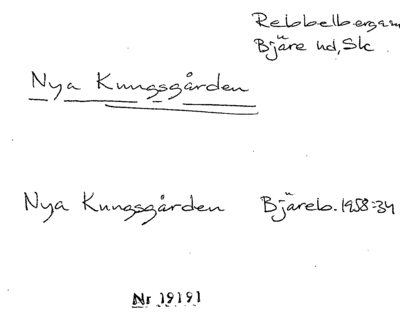 Rebbelberga sn
Bjäre hd, Sk
Nya Kungsgården
Nya Kungsgården Bjäreb. 1958:34
Nr 19191